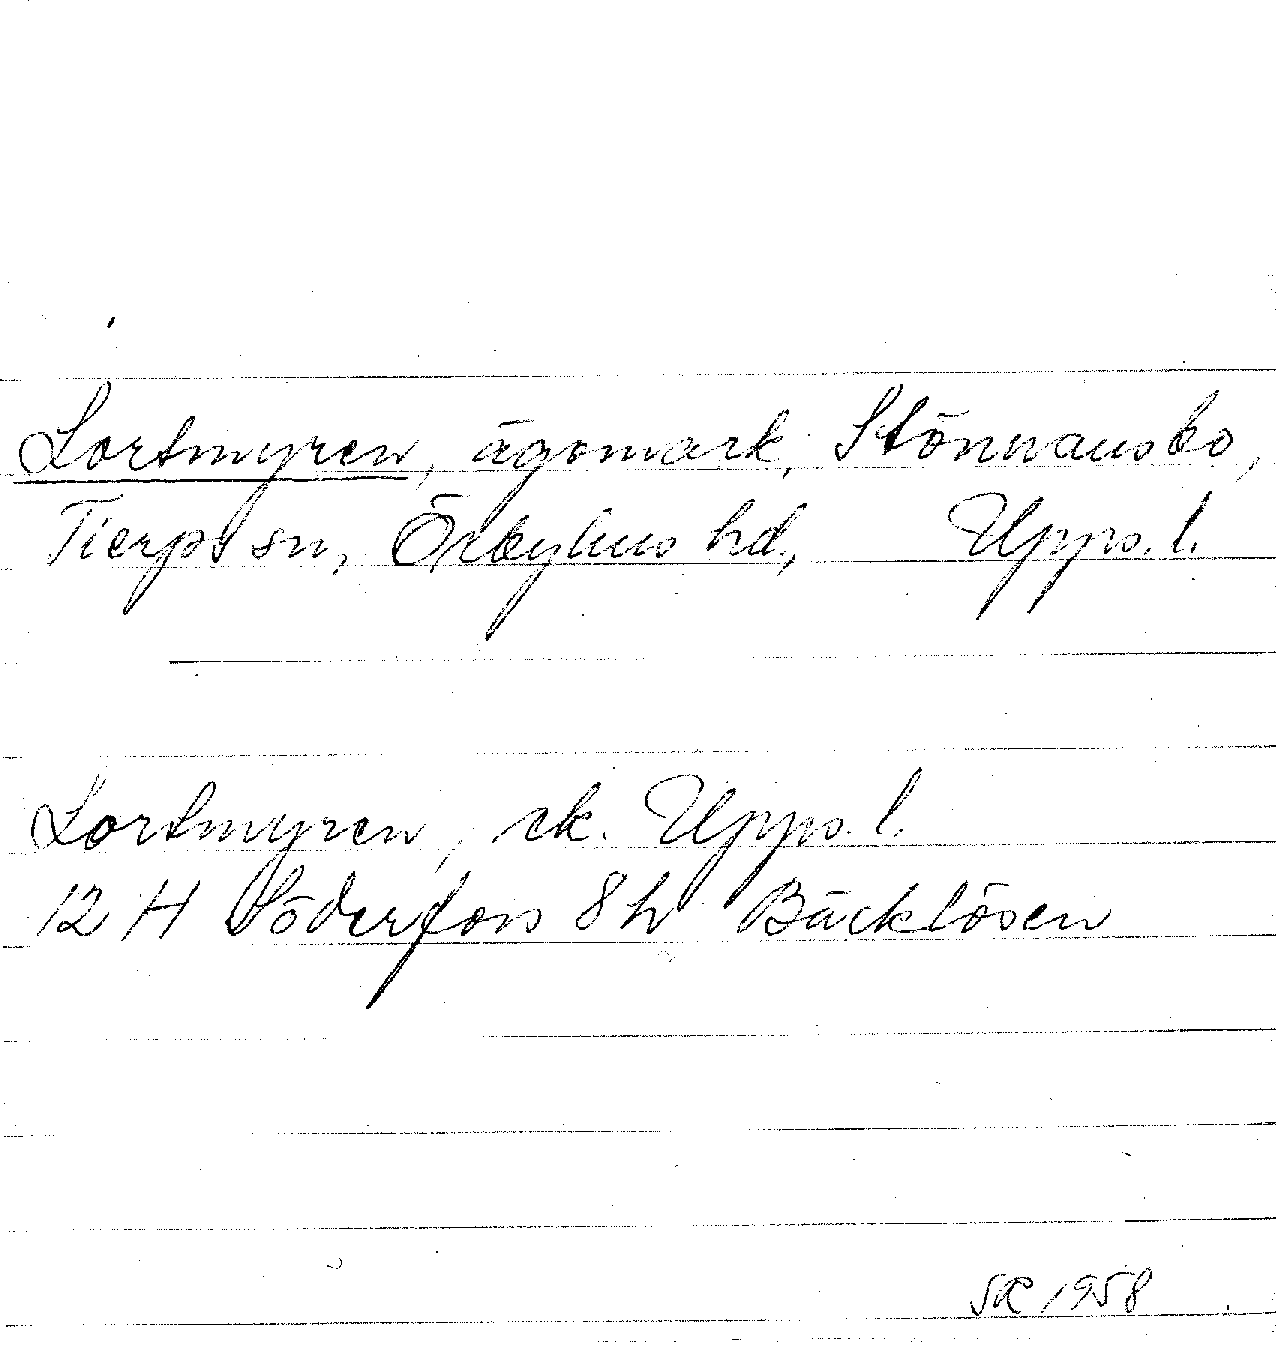 Lortmyren, ägomark, Stönwansbo,
Tierps sn, Örbyhus hd, Upps. l.
Lortmyren, ek. Upps. l.
12 H Söderfors 8 h Bäcklösen
SR 1958